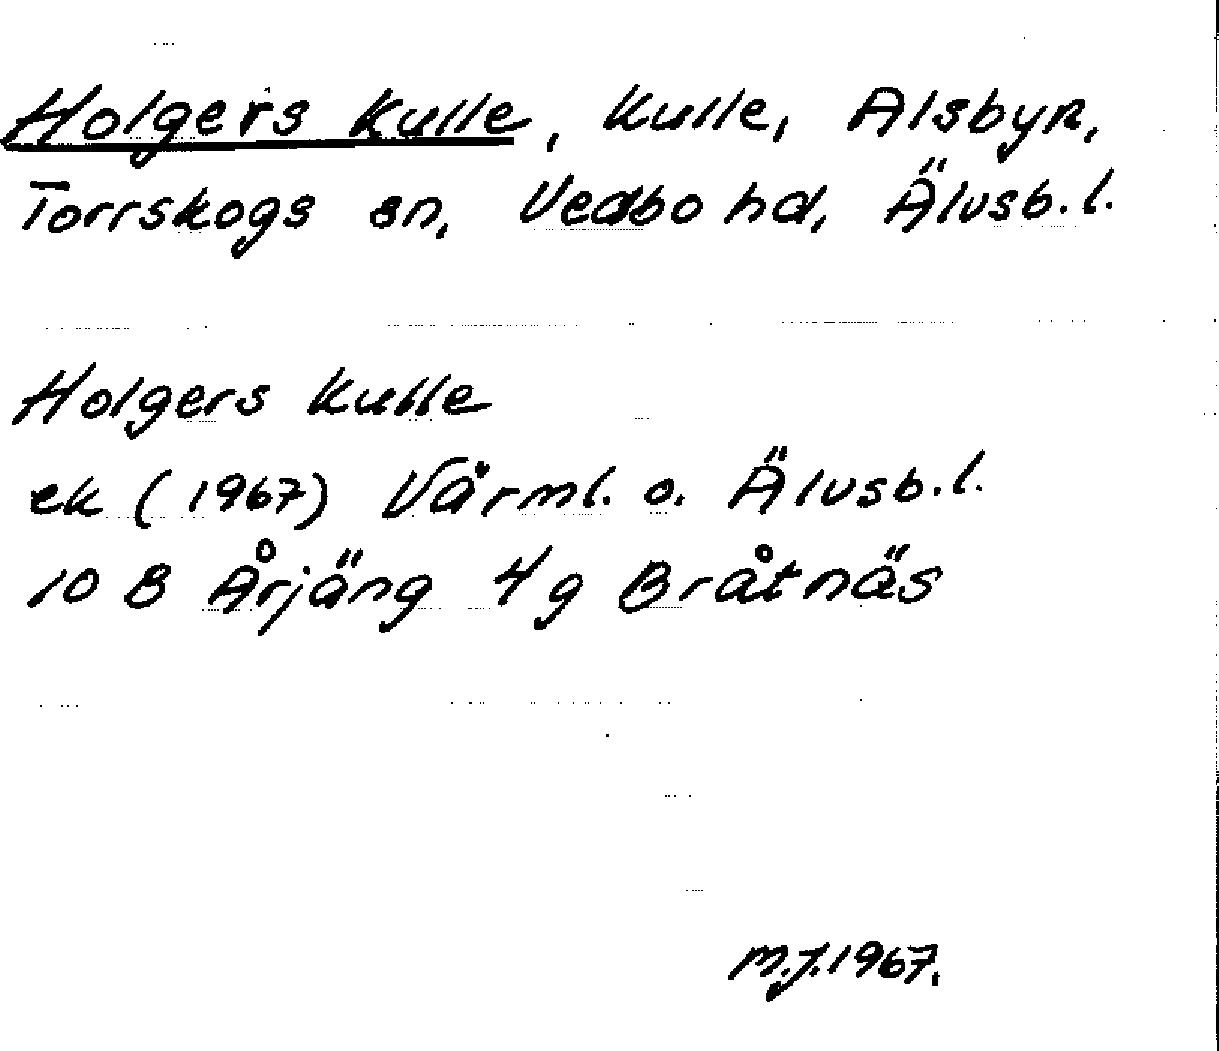 Holgers Kulle, Kulle, Alsbyn,
Torrskogs sn, Vedbo hd, Älvsb. l.
Holgers Kulle
ek (1967) Värml. o. Älvsb. l.
10 B Årjäng 4 g Bråtnäs
M.J. 1967.